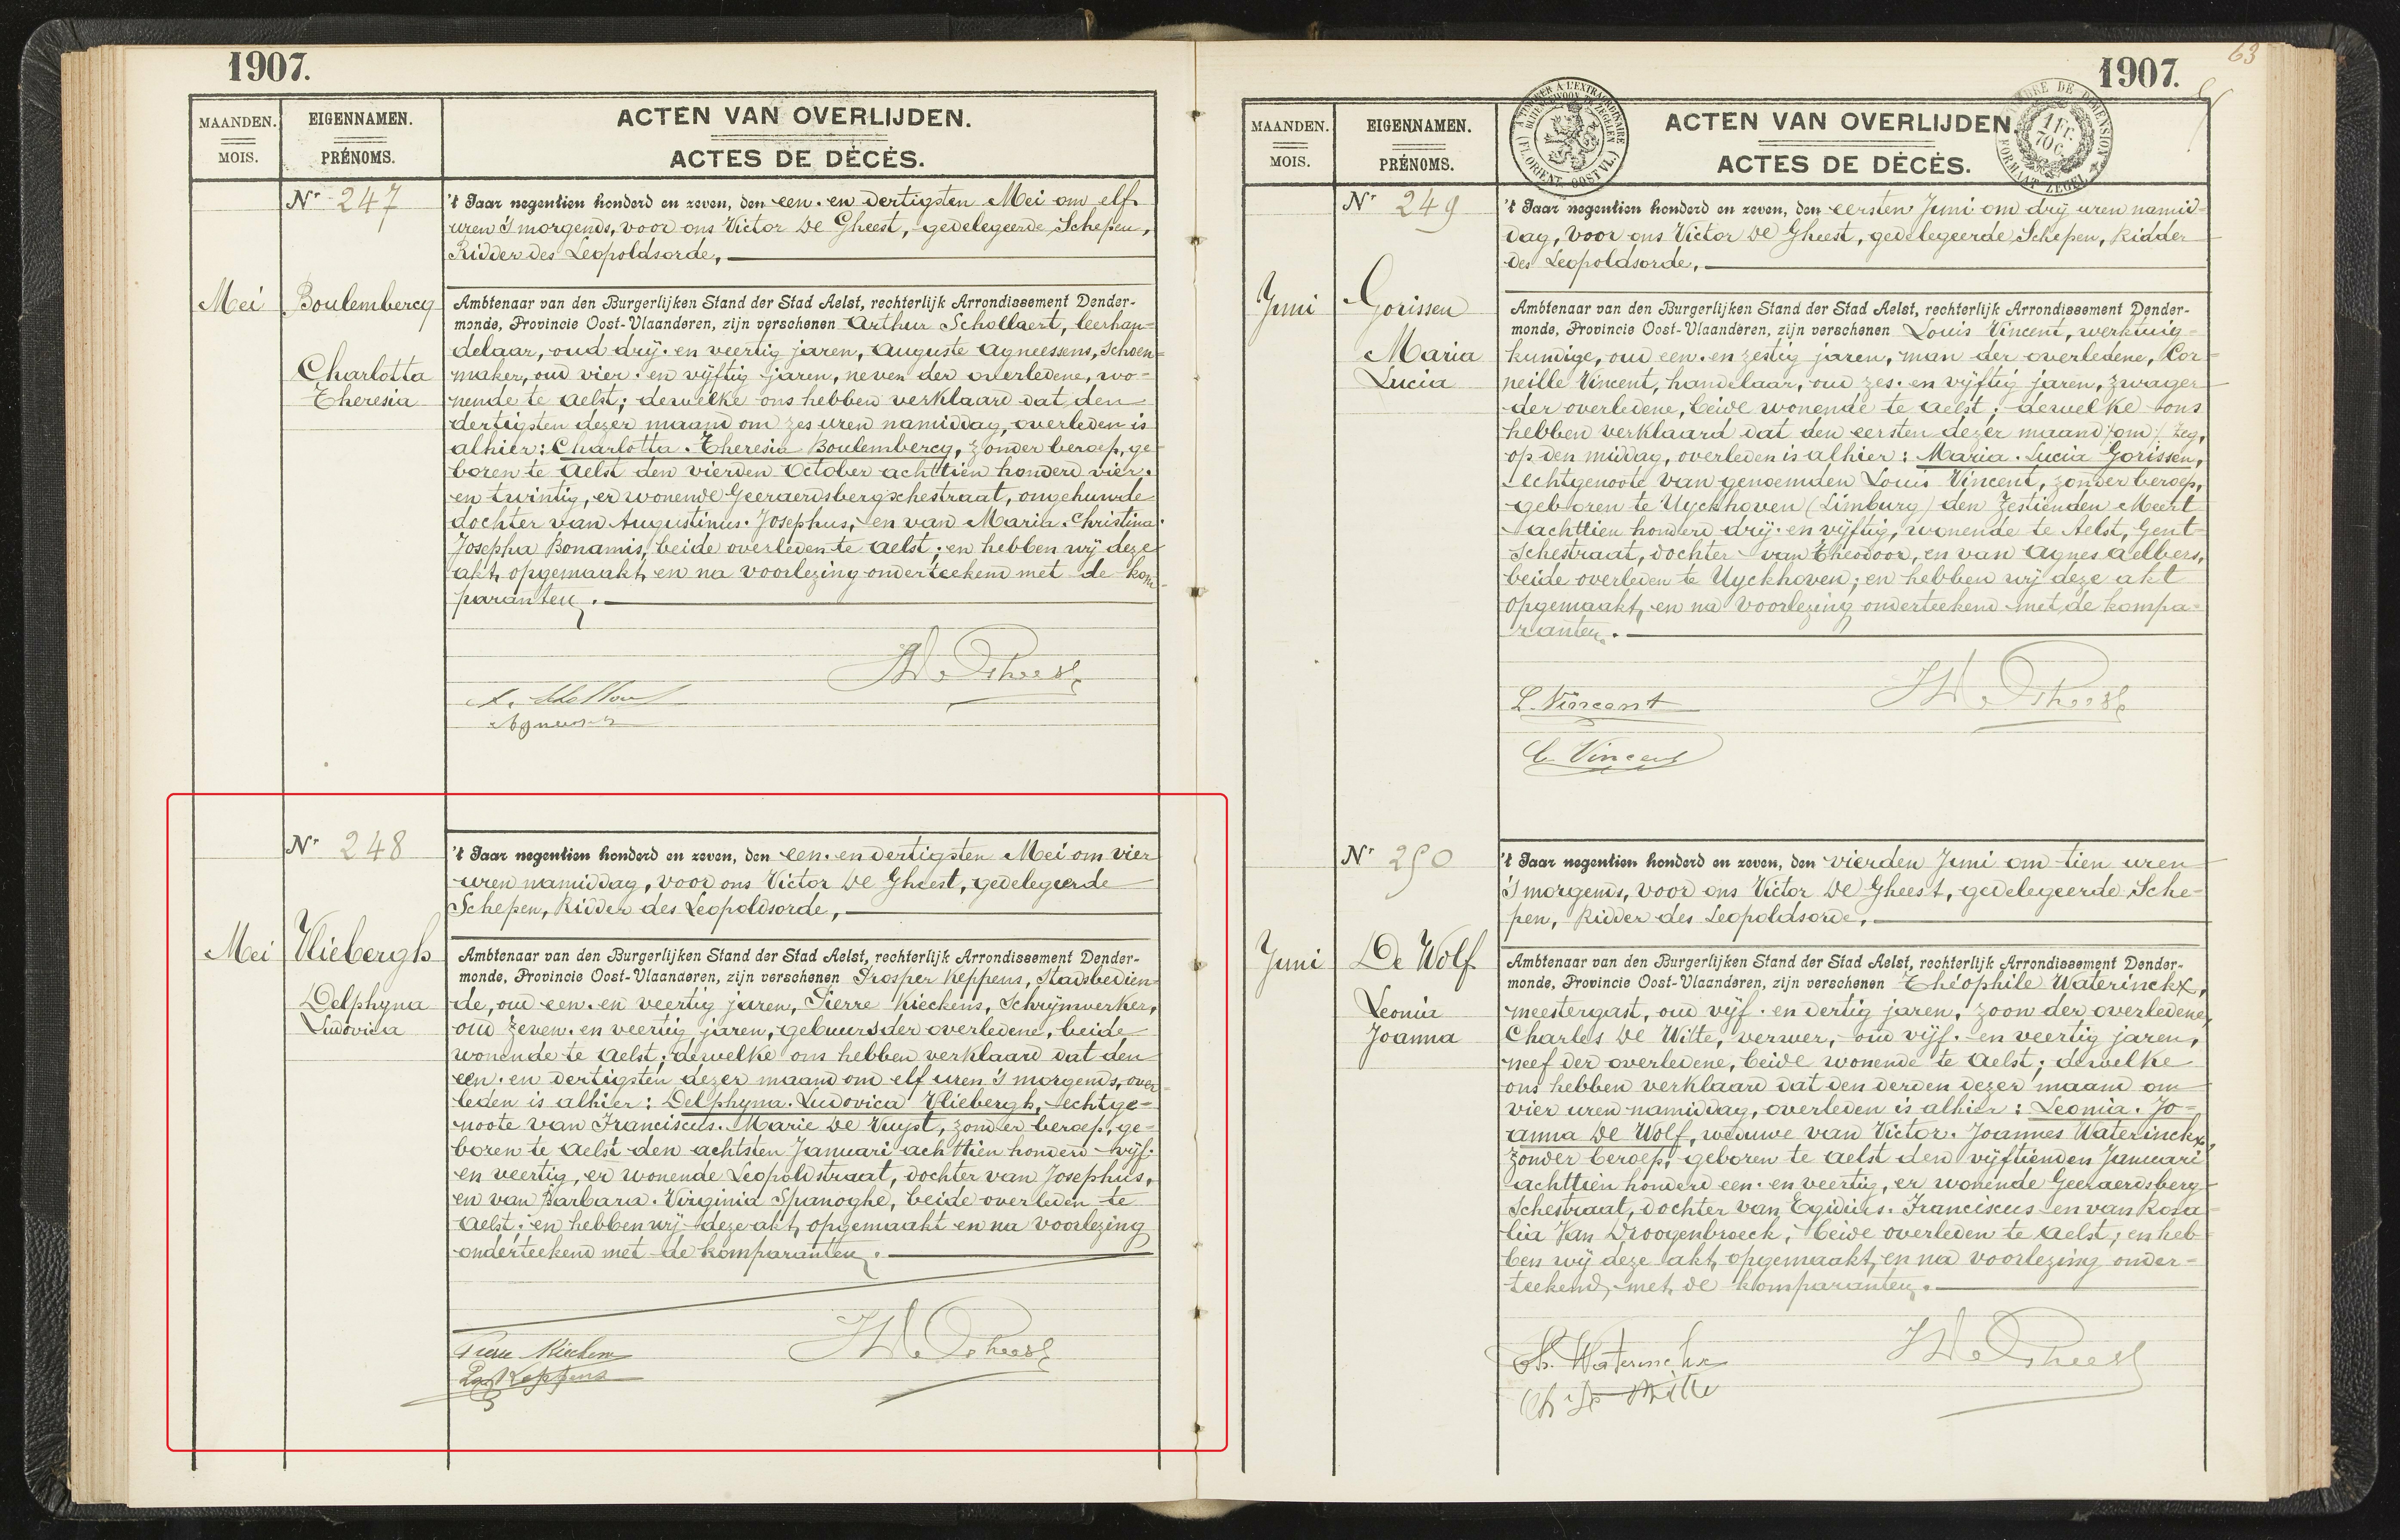 1907.
MAANDEN.
MOIS.
EIGENNAMEN.
PRÉNOMS.
ACTEN VAN OVERLIJDEN.
ACTES DE DÉCÈS.
Nr 247
Mei
Boulembercq
Charlotta
Theresia
't Jaar negentien honderd en zeven, den een. en dertigsten Mei om elf
uren 's morgends, voor ons Victor De Gheest, gedelegeerde Schepen,
Ridder des Leopoldsorde,
Ambtenaar van den Burgerlijken Stand der Stad Aelst, rechterlijk Arrondissement Dender-
monde, Provincie Oost-Vlaanderen, zijn verschenen Arthur Schollaert, leerhan-
delaar, oud drij. en veertig jaren, Auguste Agneessens, schoen-
maker, oud vier. en vijftig jaren, neven der overledene, wo-
nende te Aelst; dewelke ons hebben verklaard dat den
dertigsten dezer maand om zes uren namiddag, overleden is
alhier: Charlotta. Theresia Boulembercq, zonder beroep, ge-
boren te Aelst den vierden October achttien honderd vier.
en twintig, er wonende Geeraerdsbergschestraat, ongehuwde
dochter van Augustinus. Josephus, en van Maria. Christina.
Josepha Bonamis, beide overleden te Aelst; en hebben wij deze
akt, opgemaakt, en na voorlezing onderteekend met de kom-
paranten.
Nr 248
Mei
Vliebergh
Delphyna
Ludovica
't Jaar negentien honderd en zeven, den een. en dertigsten Mei om vier
uren namiddag, voor ons Victor De Gheest, gedelegeerde
Schepen, Ridder des Leopoldsorde,
Ambtenaar van den Burgerlijken Stand der Stad Aelst, rechterlijk Arrondissement Dender-
monde, Provincie Oost-Vlaanderen, zijn verschenen Prosper Keppens, Stadsbedien-
de, oud een. en veertig jaren, Pierre Kieckens, Schrijnwerker,
oud zeven. en veertig jaren, gebuurs der overledene, beide
wonende te Aelst; dewelke ons hebben verklaard dat den
een. en dertigsten dezer maand om elf uren 's morgends, over-
leden is alhier: Delphyna. Ludovica Vliebergh, echtge-
noote van Franciscus. Marie De Vuyst, zonder beroep, ge-
boren te Aelst den achtsten Januari achttien honderd vijf.
en veertig, er wonende Leopoldstraat, dochter van Josephus,
en van Barbara. Virginia Spanoghe, beide overleden te
Aelst; en hebben wij deze akt, opgemaakt en na voorlezing
onderteekend met de komparanten.
Pierre Kieckens
Keppens
1907.
63
MAANDEN.
MOIS.
EIGENNAMEN.
PRÉNOMS.
ACTEN VAN OVERLIJDEN.
ACTES DE DÉCÈS.
1 Fr.
70 C.
FORMAAT ZEGEL
Nr 249
Juni
Gorissen
Maria
Lucia
't Jaar negentien honderd en zeven, den eersten Juni om drij uren namid-
dag, voor ons Victor De Gheest, gedelegeerde Schepen, Ridder
des Leopoldsorde,
Ambtenaar van den Burgerlijken Stand der Stad Aelst, rechterlijk Arrondissement Dender-
monde, Provincie Oost-Vlaanderen, zijn verschenen Louis Vincent, werktuig-
kundige, oud een. en zestig jaren, man der overledene, Cor-
neille Vincent, handelaar, oud zes. en vijftig jaren, zwager
der overledene, beide wonende te Aelst; dewelke ons
hebben verklaard dat den eersten dezer maand om
op den middag, overleden is alhier: Maria. Lucia Gorissen,
echtgenoote van genoemden Louis Vincent, zonder beroep,
geboren te Uyckhoven (Limburg) den zestienden Meert
achttien honderd drij. en vijftig, wonende te Aelst, Gent-
schestraat, dochter van Theodoor, en van Agnes Aelbers,
beide overleden te Uyckhoven; en hebben wij deze akt
opgemaakt, en na voorlezing onderteekend met de kompa-
ranten.
L. Vincent
C. Vincent
Nr 250
Juni
De Wolf
Leonia
Joanna
't Jaar negentien honderd en zeven, den vierden Juni om tien uren
's morgends, voor ons Victor De Gheest, gedelegeerde Sche-
pen, Ridder des Leopoldsorde,
Ambtenaar van den Burgerlijken Stand der Stad Aelst, rechterlijk Arrondissement Dender-
monde, Provincie Oost-Vlaanderen, zijn verschenen Théophile Waterinckx,
meestergast, oud vijf. en dertig jaren, zoon der overledene,
Charles De Witte, verwer, oud vijf. en veertig jaren,
neef der overledene, beide wonende te Aelst; dewelke
ons hebben verklaard dat den derden dezer maand om
vier uren namiddag, overleden is alhier: Leonia. Jo-
anna De Wolf, weduwe van Victor. Joannes Waterinckx,
zonder beroep, geboren te Aelst den vijftienden Januari
achttien honderd een. en veertig, er wonende Geeraerdsberg-
schestraat, dochter van Egidius. Franciscus en van Rosa-
lia Van Droogenbroeck, beide overleden te Aelst; en heb-
ben wij deze akt, opgemaakt, en na voorlezing onder-
teekend, met de komparanten.
Th. Waterinckx
Ch De Witte